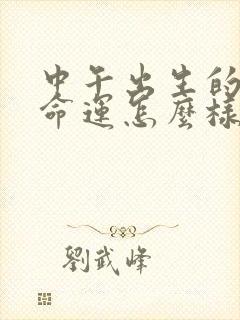 中午出生的
命運怎麼樣
劉武峰